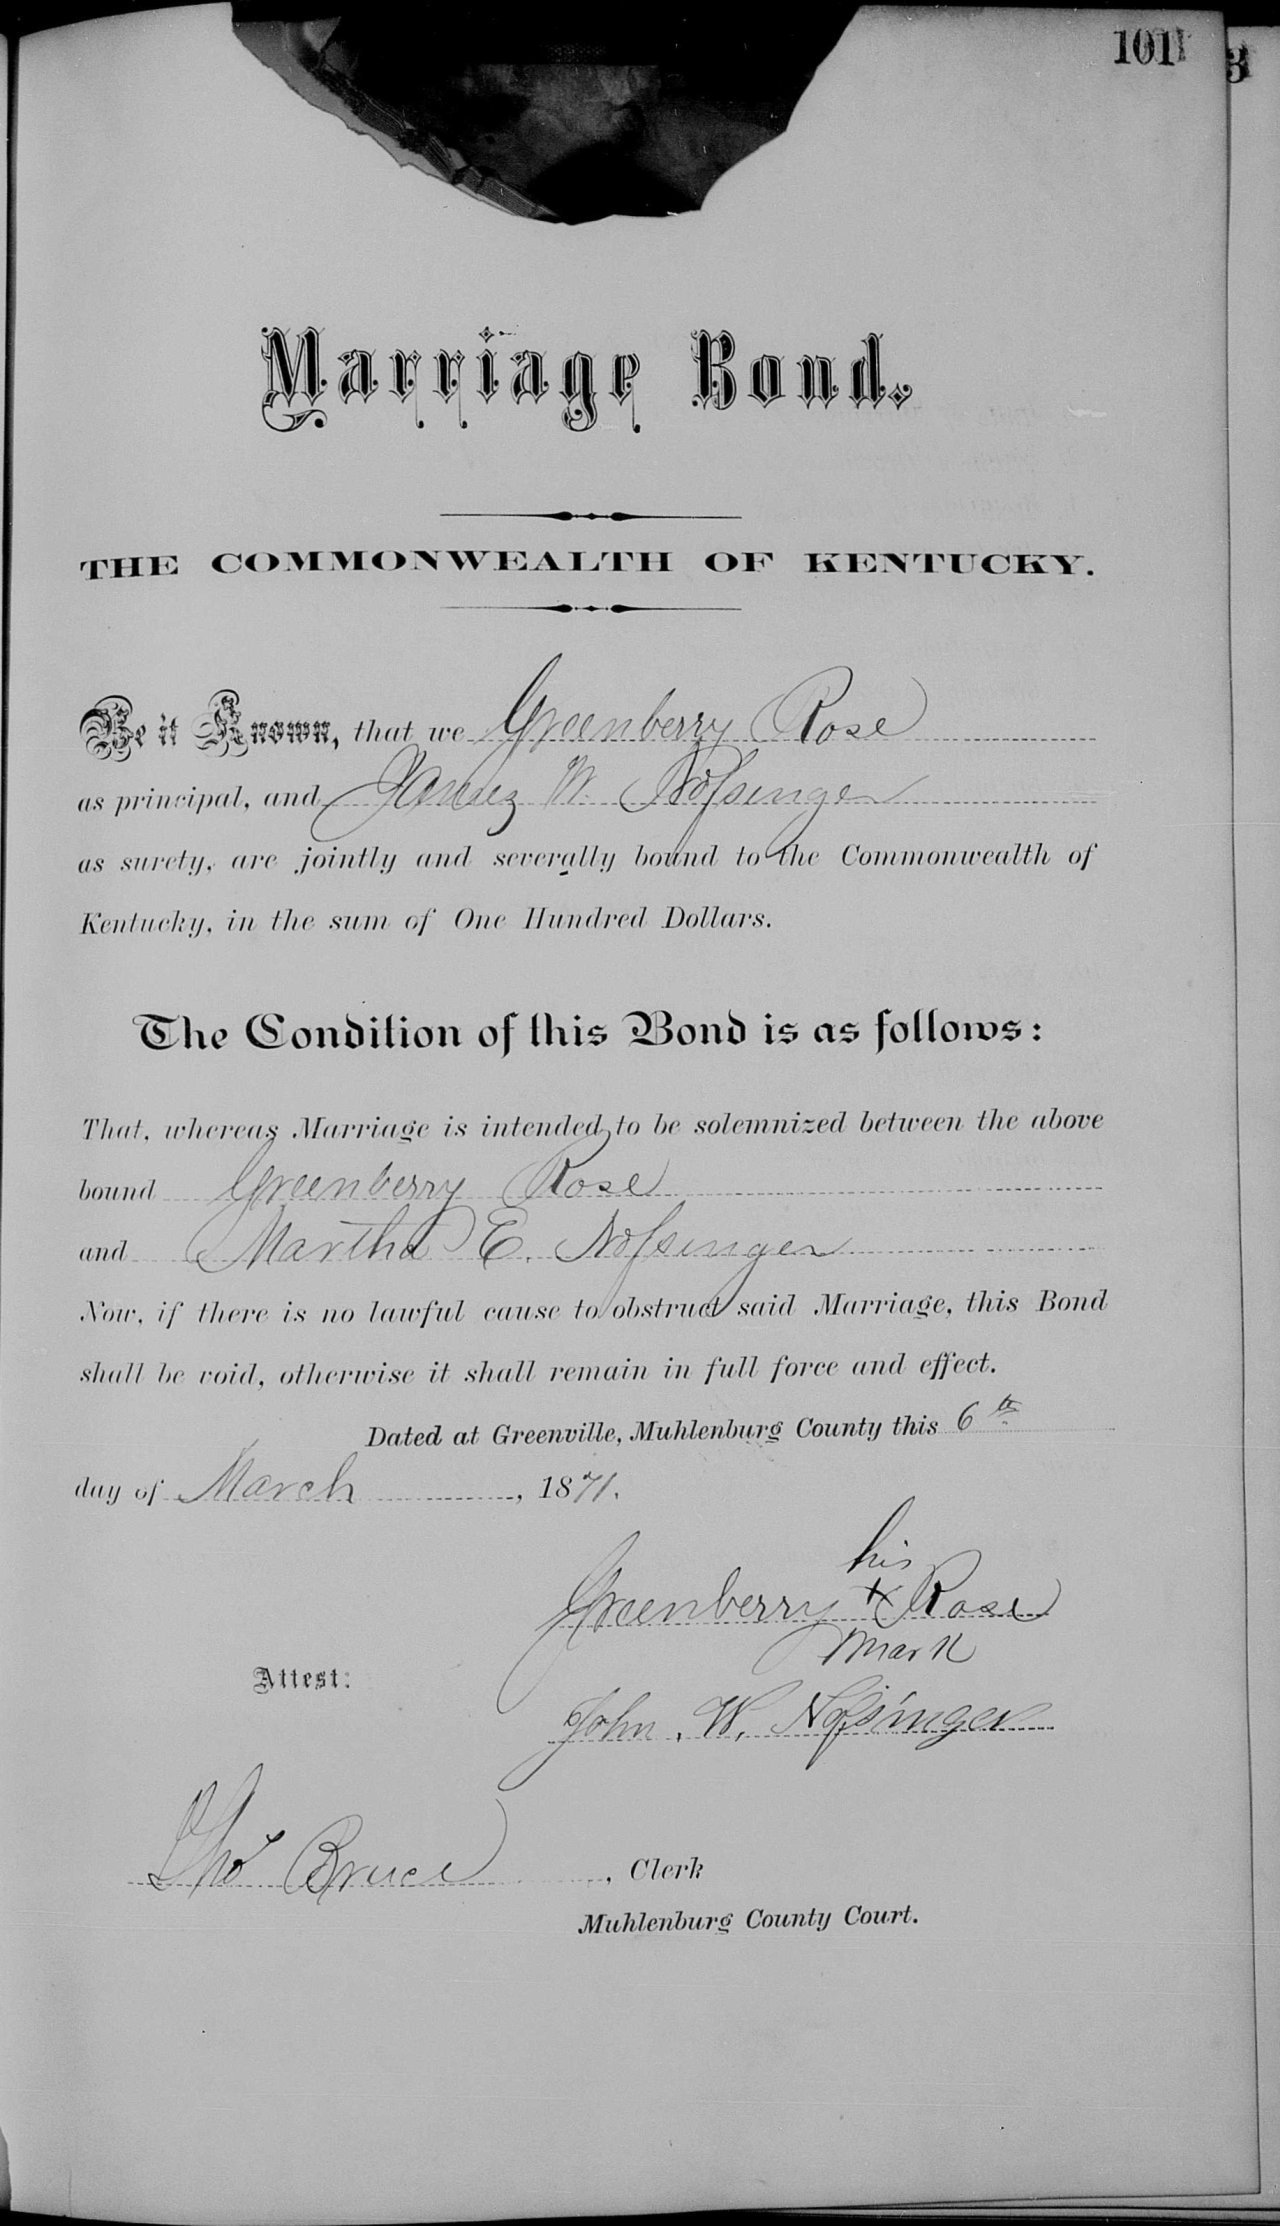 101
3
Marriage Bond.
THE COMMONWEALTH OF KENTUCKY.
Be it Known, that we Greenberry Rose
as principal, and James W. Nofsinger
as surety, are jointly and severally bound to the Commonwealth of
Kentucky, in the sum of One Hundred Dollars.
The Condition of this Bond is as follows:
That, whereas Marriage is intended to be solemnized between the above
bound Greenberry Rose
and Martha E. Nofsinger
Now, if there is no lawful cause to obstruct said Marriage, this Bond
shall be void, otherwise it shall remain in full force and effect.
Dated at Greenville, Muhlenburg County this 6th
day of March, 1871.
his
Greenberry X Rose
mark
Attest:
John. W. Nofsinger
Tho^s Bruce, Clerk
Muhlenburg County Court.